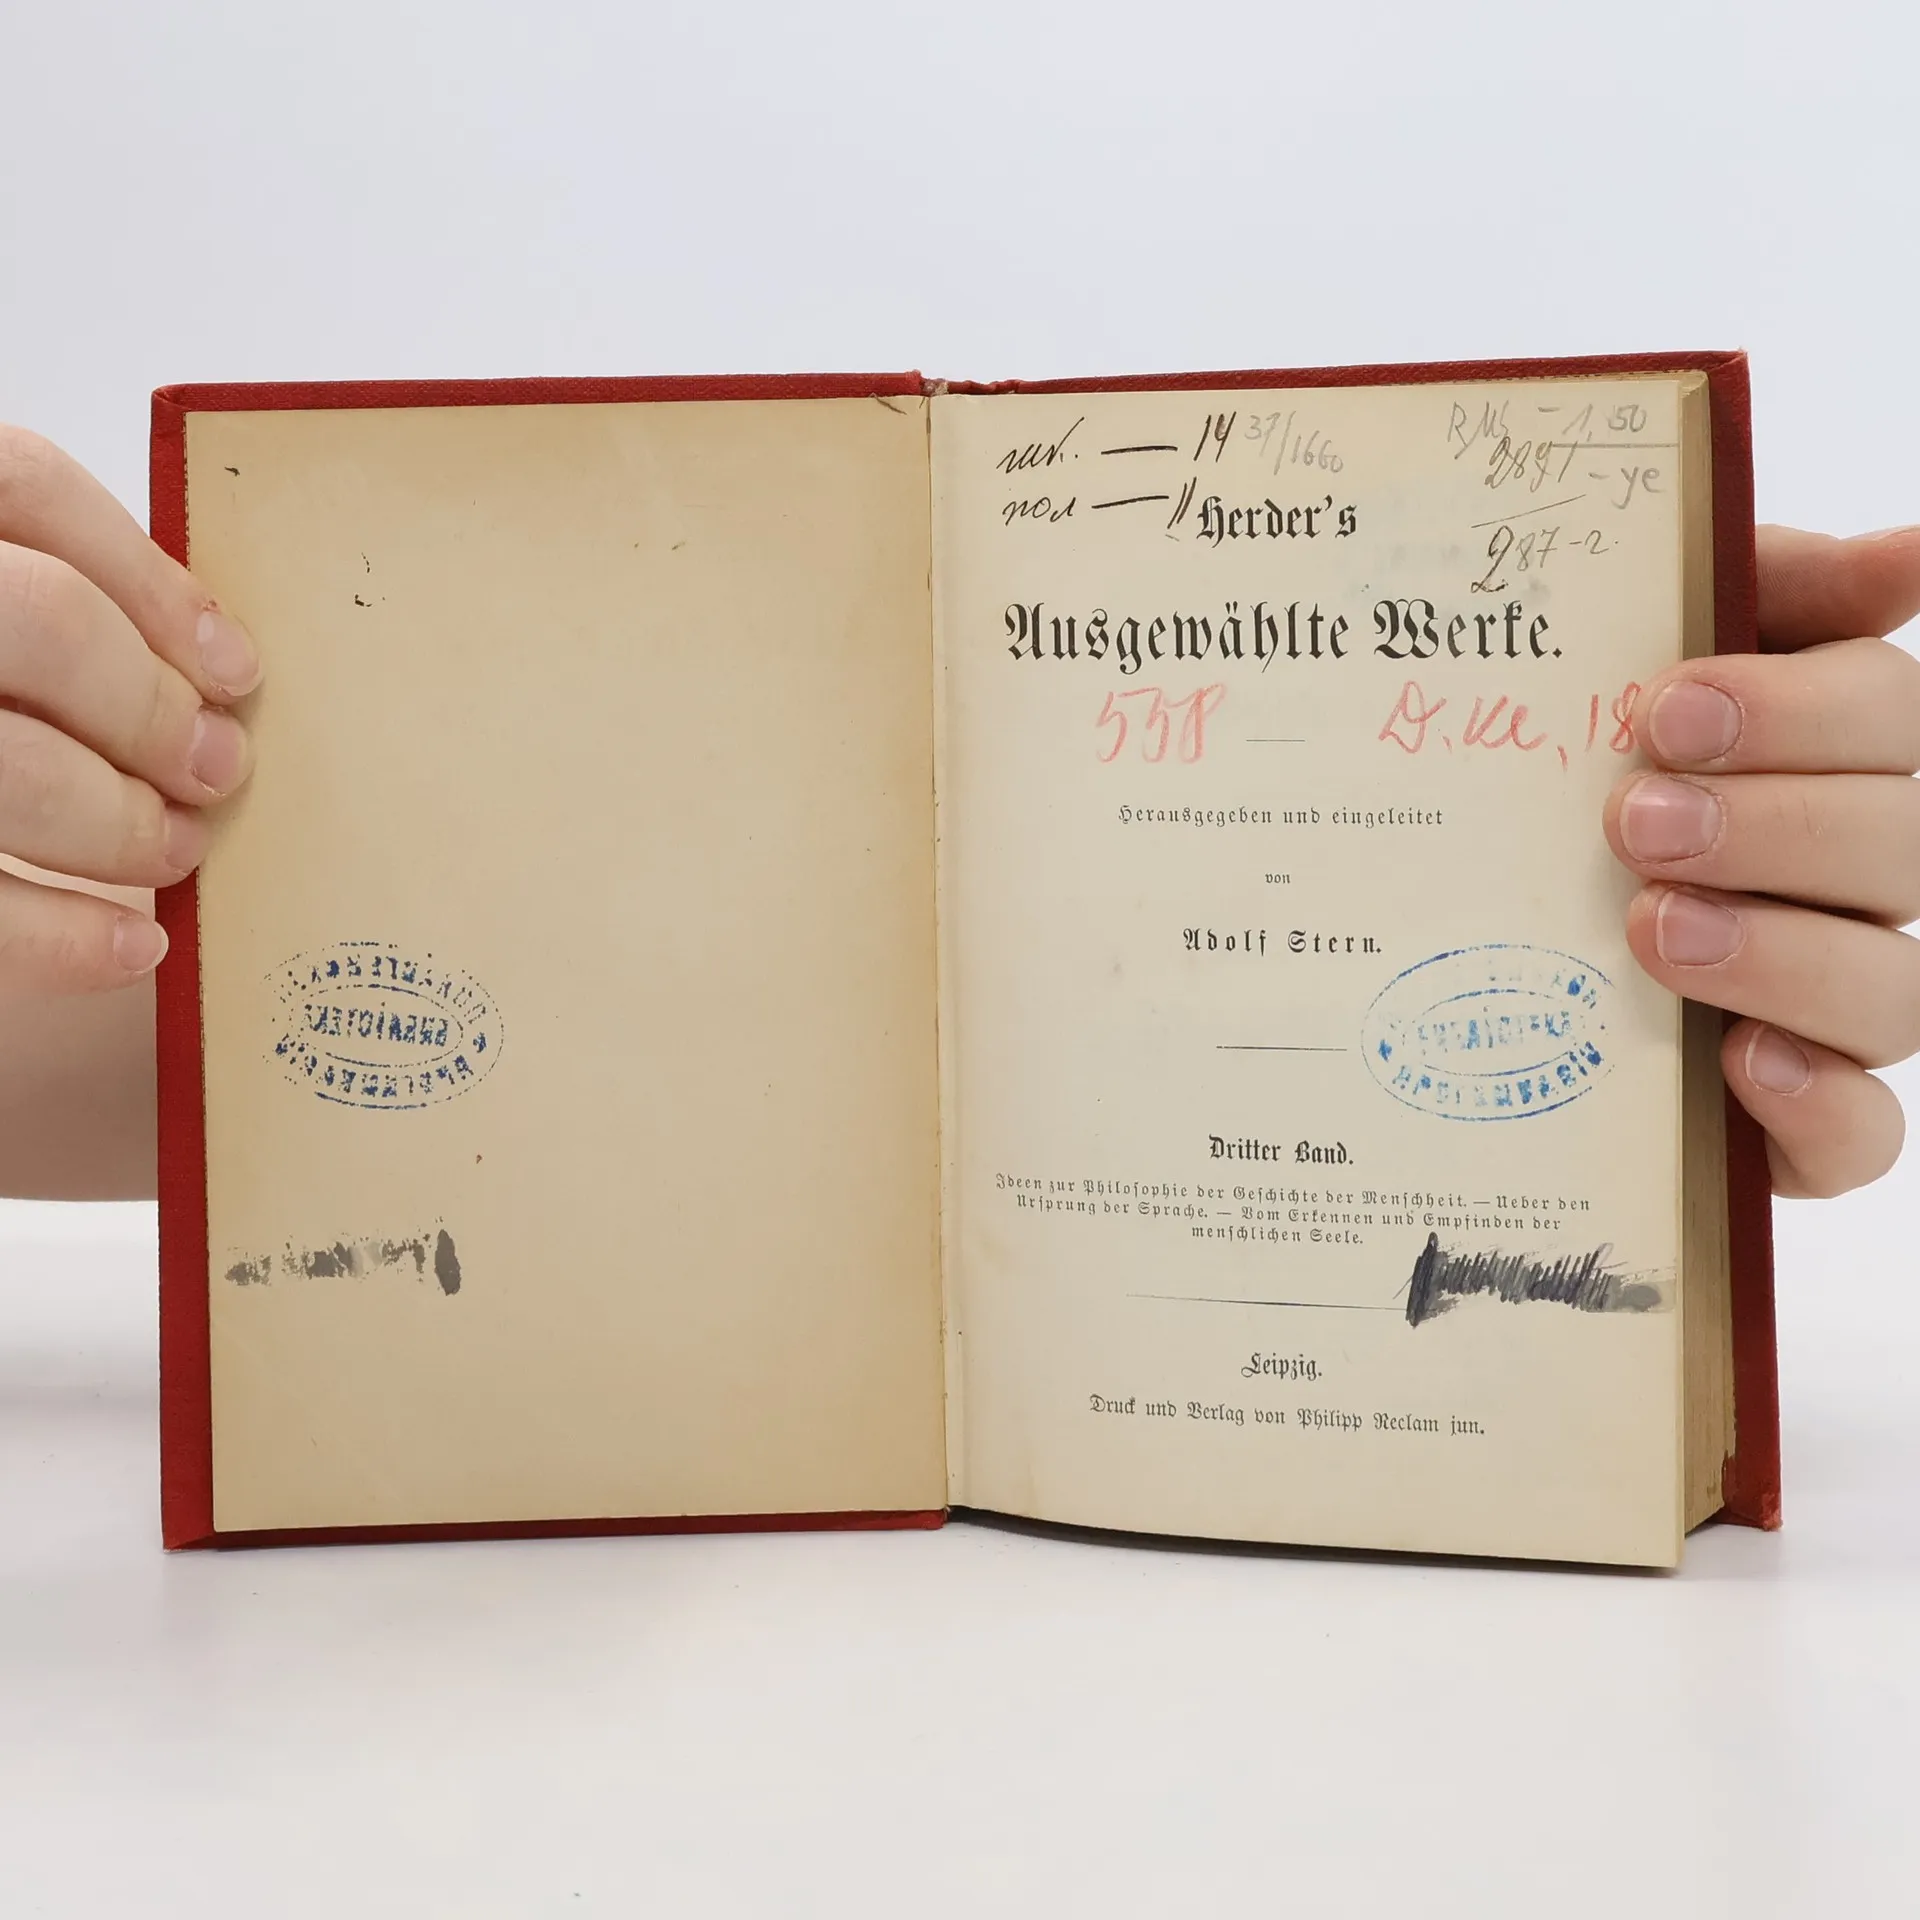 14 37/1660
RM - 1,50
2891 - ye
287-2.
Herder's
Ausgewählte Werke.
558 D. Kl, 18
Herausgegeben und eingeleitet
von
Adolf Stern.
Dritter Band.
Ideen zur Philosophie der Geschichte der Menschheit. — Ueber den
Ursprung der Sprache. — Vom Erkennen und Empfinden der
menschlichen Seele.
Leipzig.
Druck und Verlag von Philipp Reclam jun.